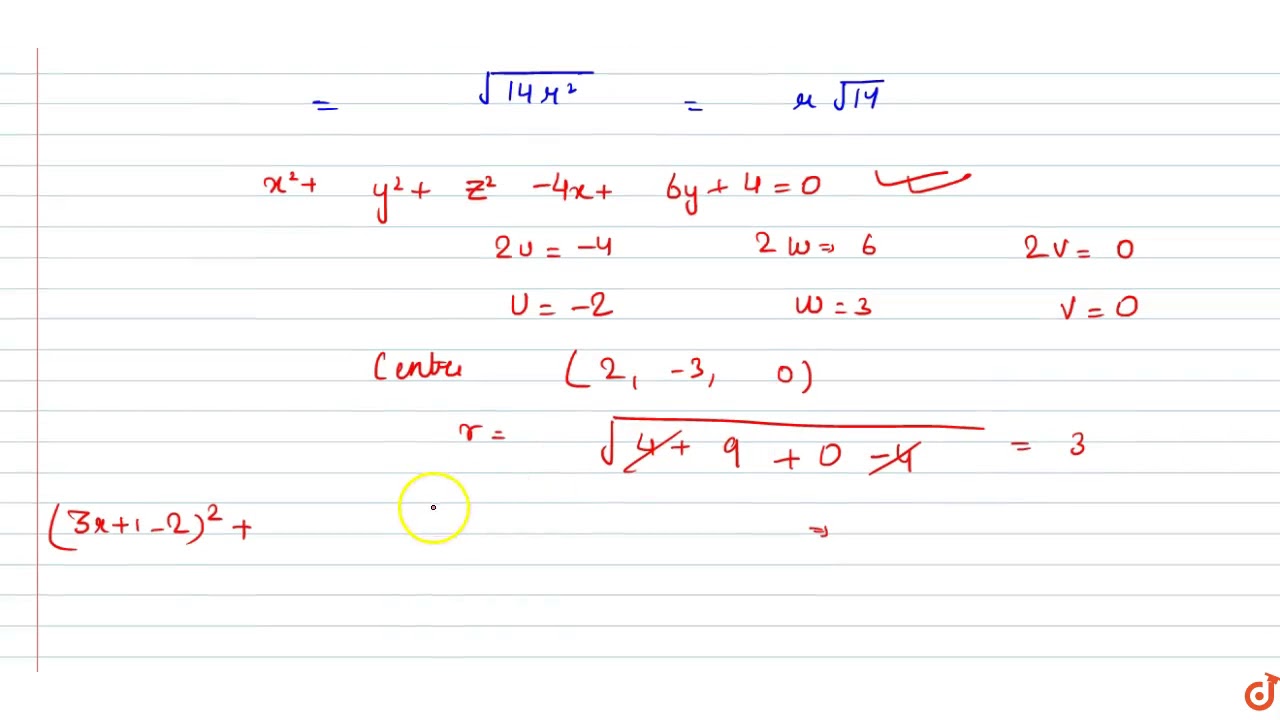 = √14r² = r √14
x² + y² + z² -4x + 6y + 4 = 0
2u = -4 2w = 6 2v = 0
u = -2 w = 3 v = 0
Centre (2, -3, 0)
r = √4 + 9 + 0 - 4 = 3
(3r+1-2)² + =